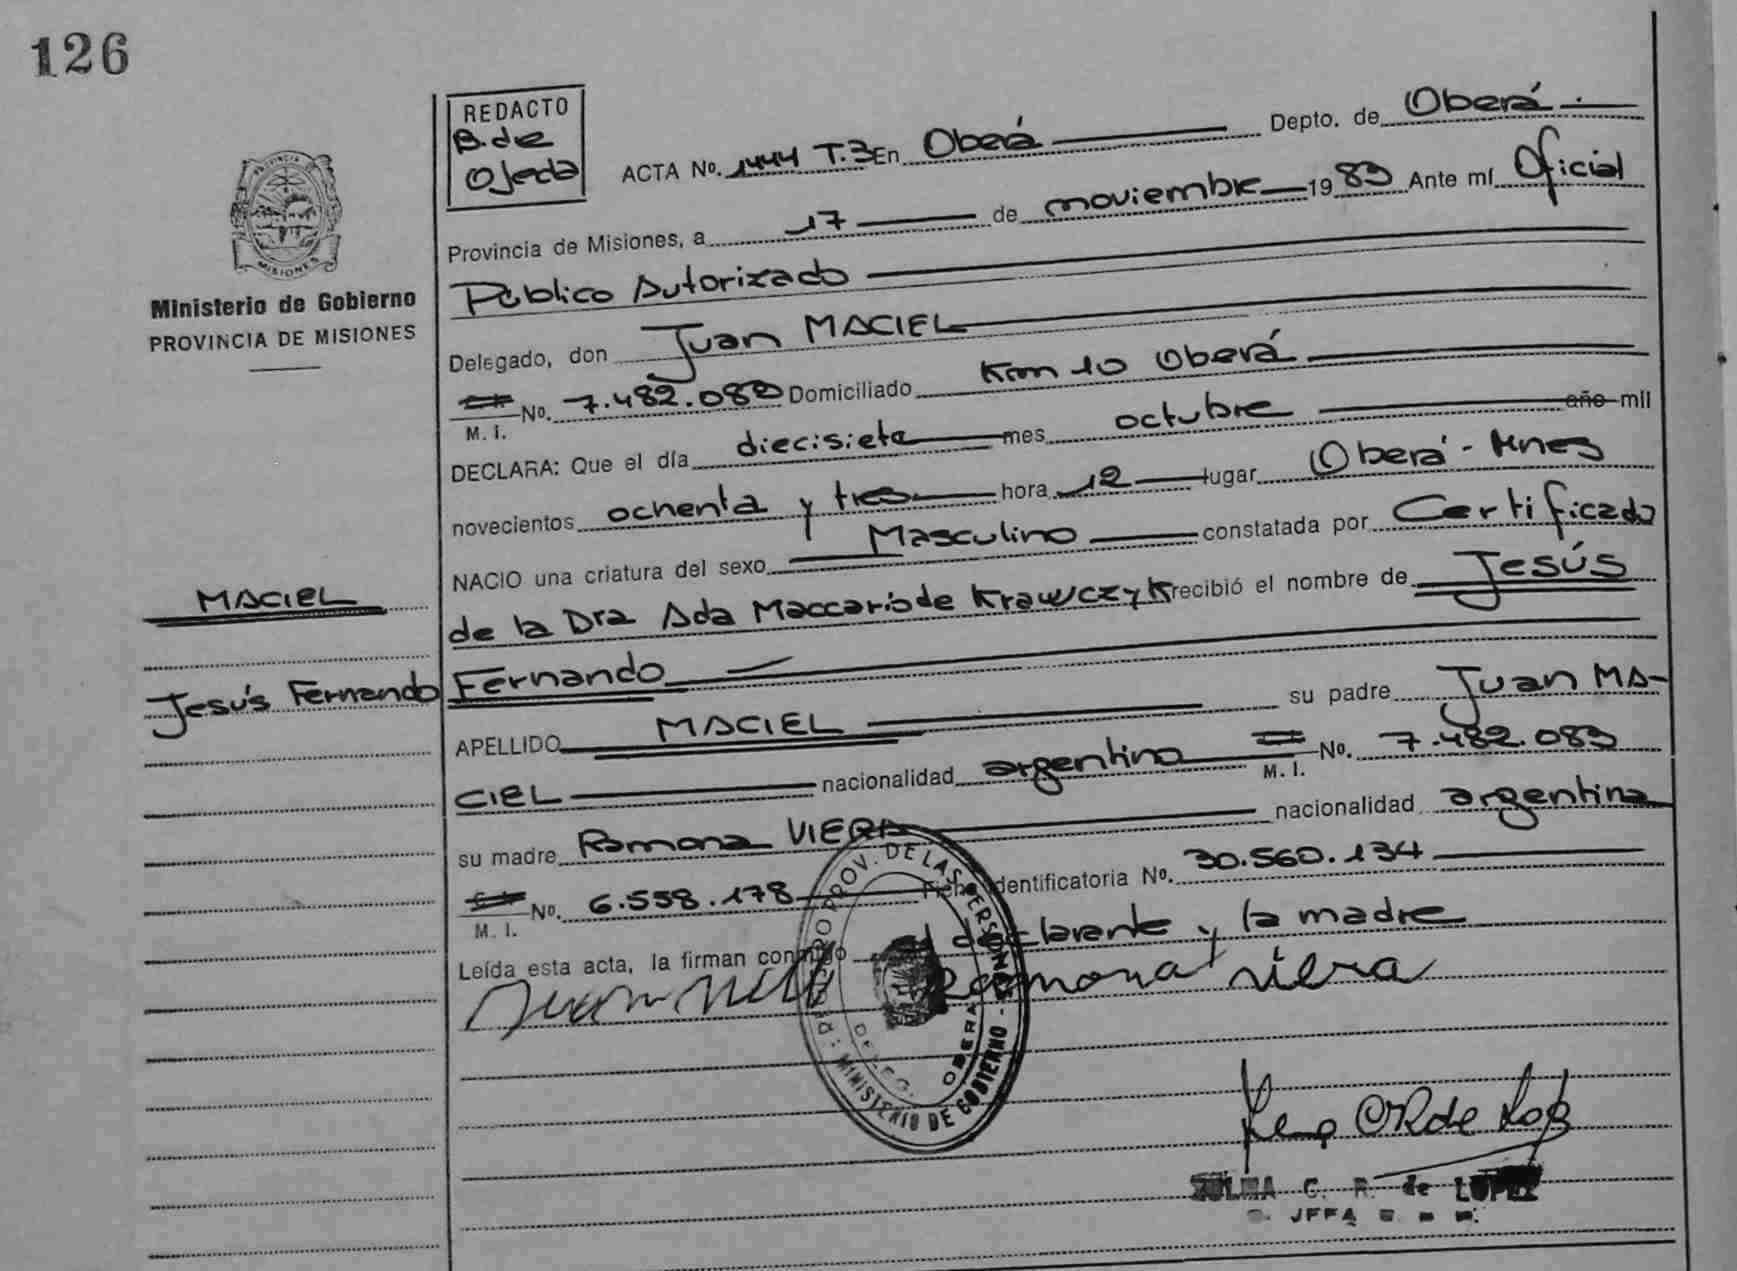 126
REDACTO
B. de
Ojeda
ACTA No. 1444 T.3 En Oberá Depto. de Oberá.
Provincia de Misiones, a 17 de noviembre 1983 Ante mí Oficial
Público Autorizado
Delegado, don Juan MACIEL
M. I. No. 7.482.083 Domiciliado Km 10 Oberá
DECLARA: Que el día diecisiete mes octubre año mil
novecientos ochenta y tres hora 12 lugar Oberá - Mnes
NACIO una criatura del sexo Masculino constatada por Certificado
de la Dra Ada Maccario de Krawczyk recibió el nombre de Jesús
Fernando
APELLIDO MACIEL su padre Juan MA-
CIEL nacionalidad argentina M. I. No. 7.482.083
su madre Ramona VIERA nacionalidad argentina
M. I. No. 6.558.178 Ficha identificatoria No. 30.560.134
Leída esta acta, la firman conmigo el declarante y la madre
Ramona Viera
PROVINCIA DE
MISIONES
Ministerio de Gobierno
PROVINCIA DE MISIONES
MACIEL
Jesús Fernando
REGISTRO PROV. DE LAS PERSONAS - MINISTERIO DE GOBIERNO
DELEG. OBERA
ZULMA C. R. de LOPEZ
JEFA